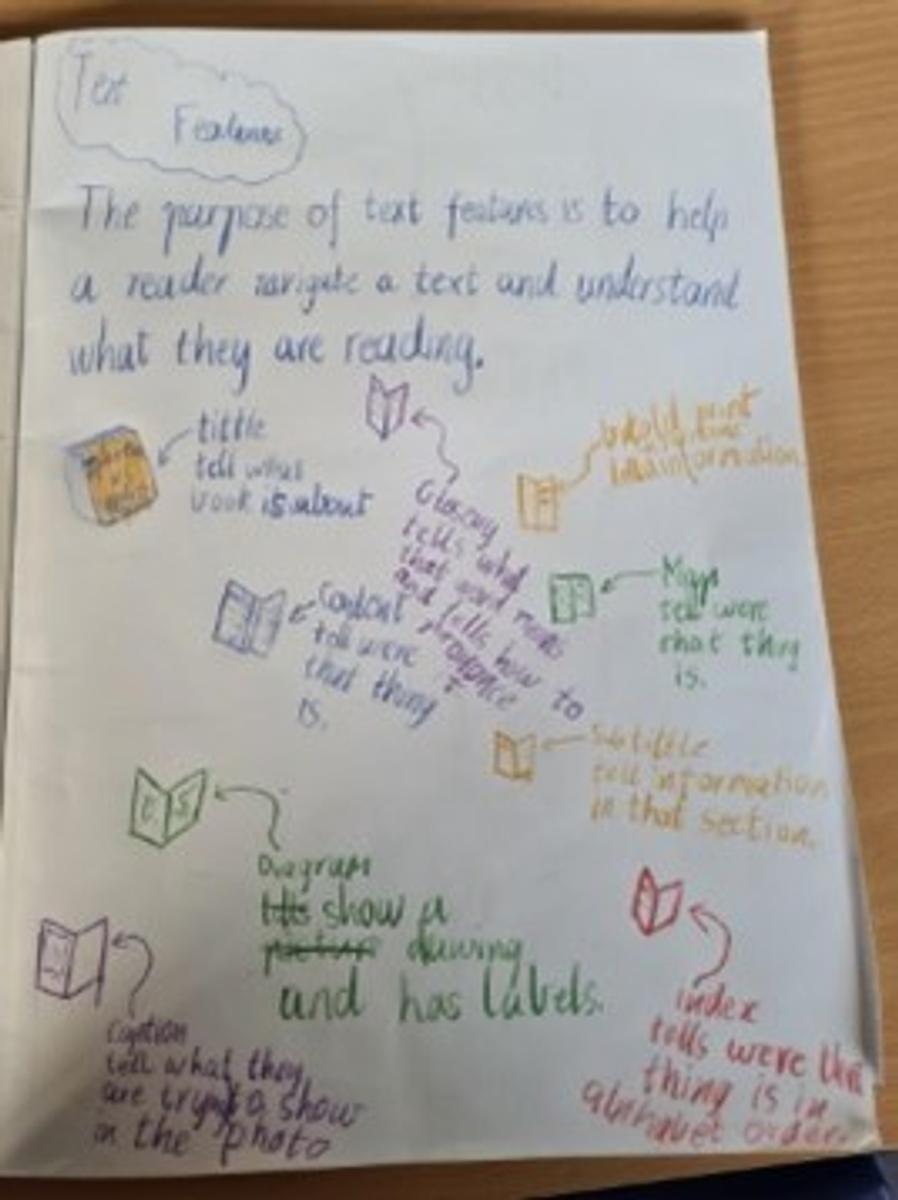 Text
Features
The purpose of text features is to help
a reader navigate a text and understand
what they are reading.
tittle
tell what
book is about
print
information
Glacary
tells what
that word means
and tells how to
Content
tell were
that thing
is.
Maps
tell were
that thing
is.
Subtittle
tell information
in that section.
Diagram
show a
picture drawing
and has labels.
Caption
tell what they
are trying to show
in the photo
index
tells were that
thing is in
order.